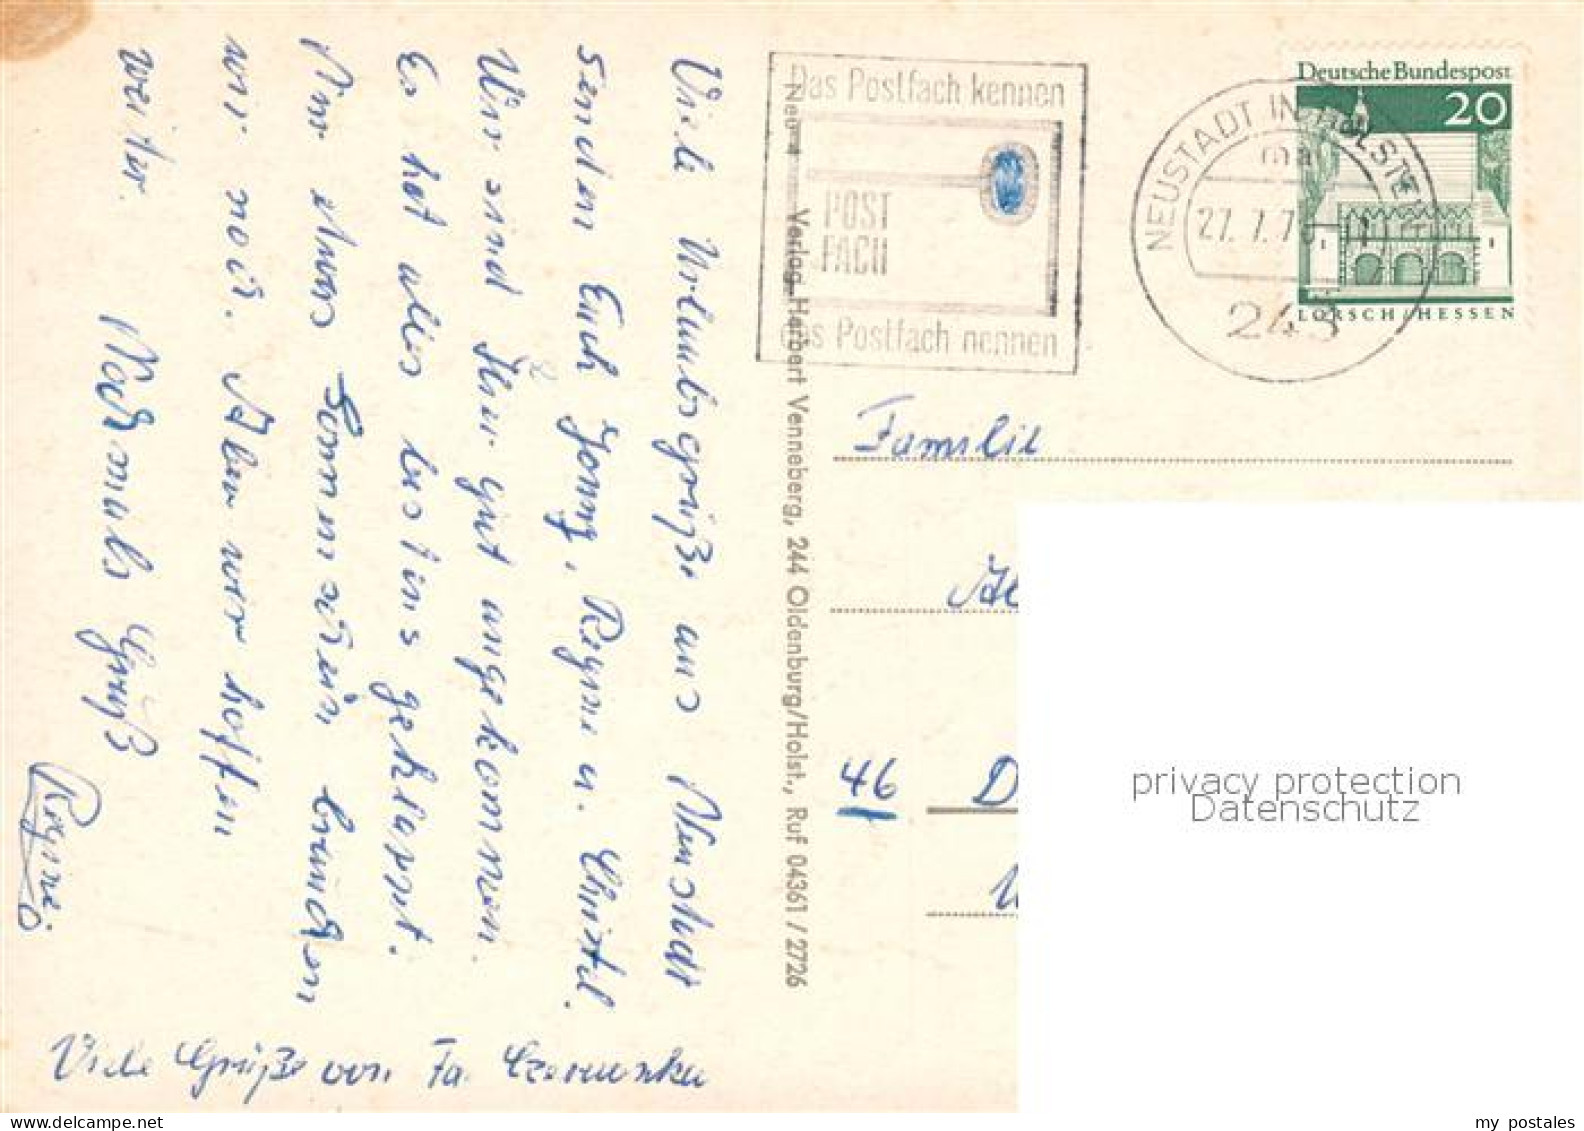 Viele Urlaubsgrüße aus Neustadt
senden Euch Jonny, Regine u. Christel.
Wir sind hier gut angekommen.
Es hat alles bestens geklappt.
Nur etwas Sonnenschein brauchen
wir noch. Aber wir hoffen
weiter.
Nochmals Gruß
Regine
Viele Grüße von Fa.
Neu
Verlag Herbert Venneberg, 244 Oldenburg/Holst., Ruf 04361 / 2726
Das Postfach kennen
POST
FACH
das Postfach nennen
NEUSTADT IN HOLSTEIN
ma
27. 7. 7
243
Deutsche Bundespost
20
LORSCH/HESSEN
Familie
46 D
privacy protection
Datenschutz
my postales